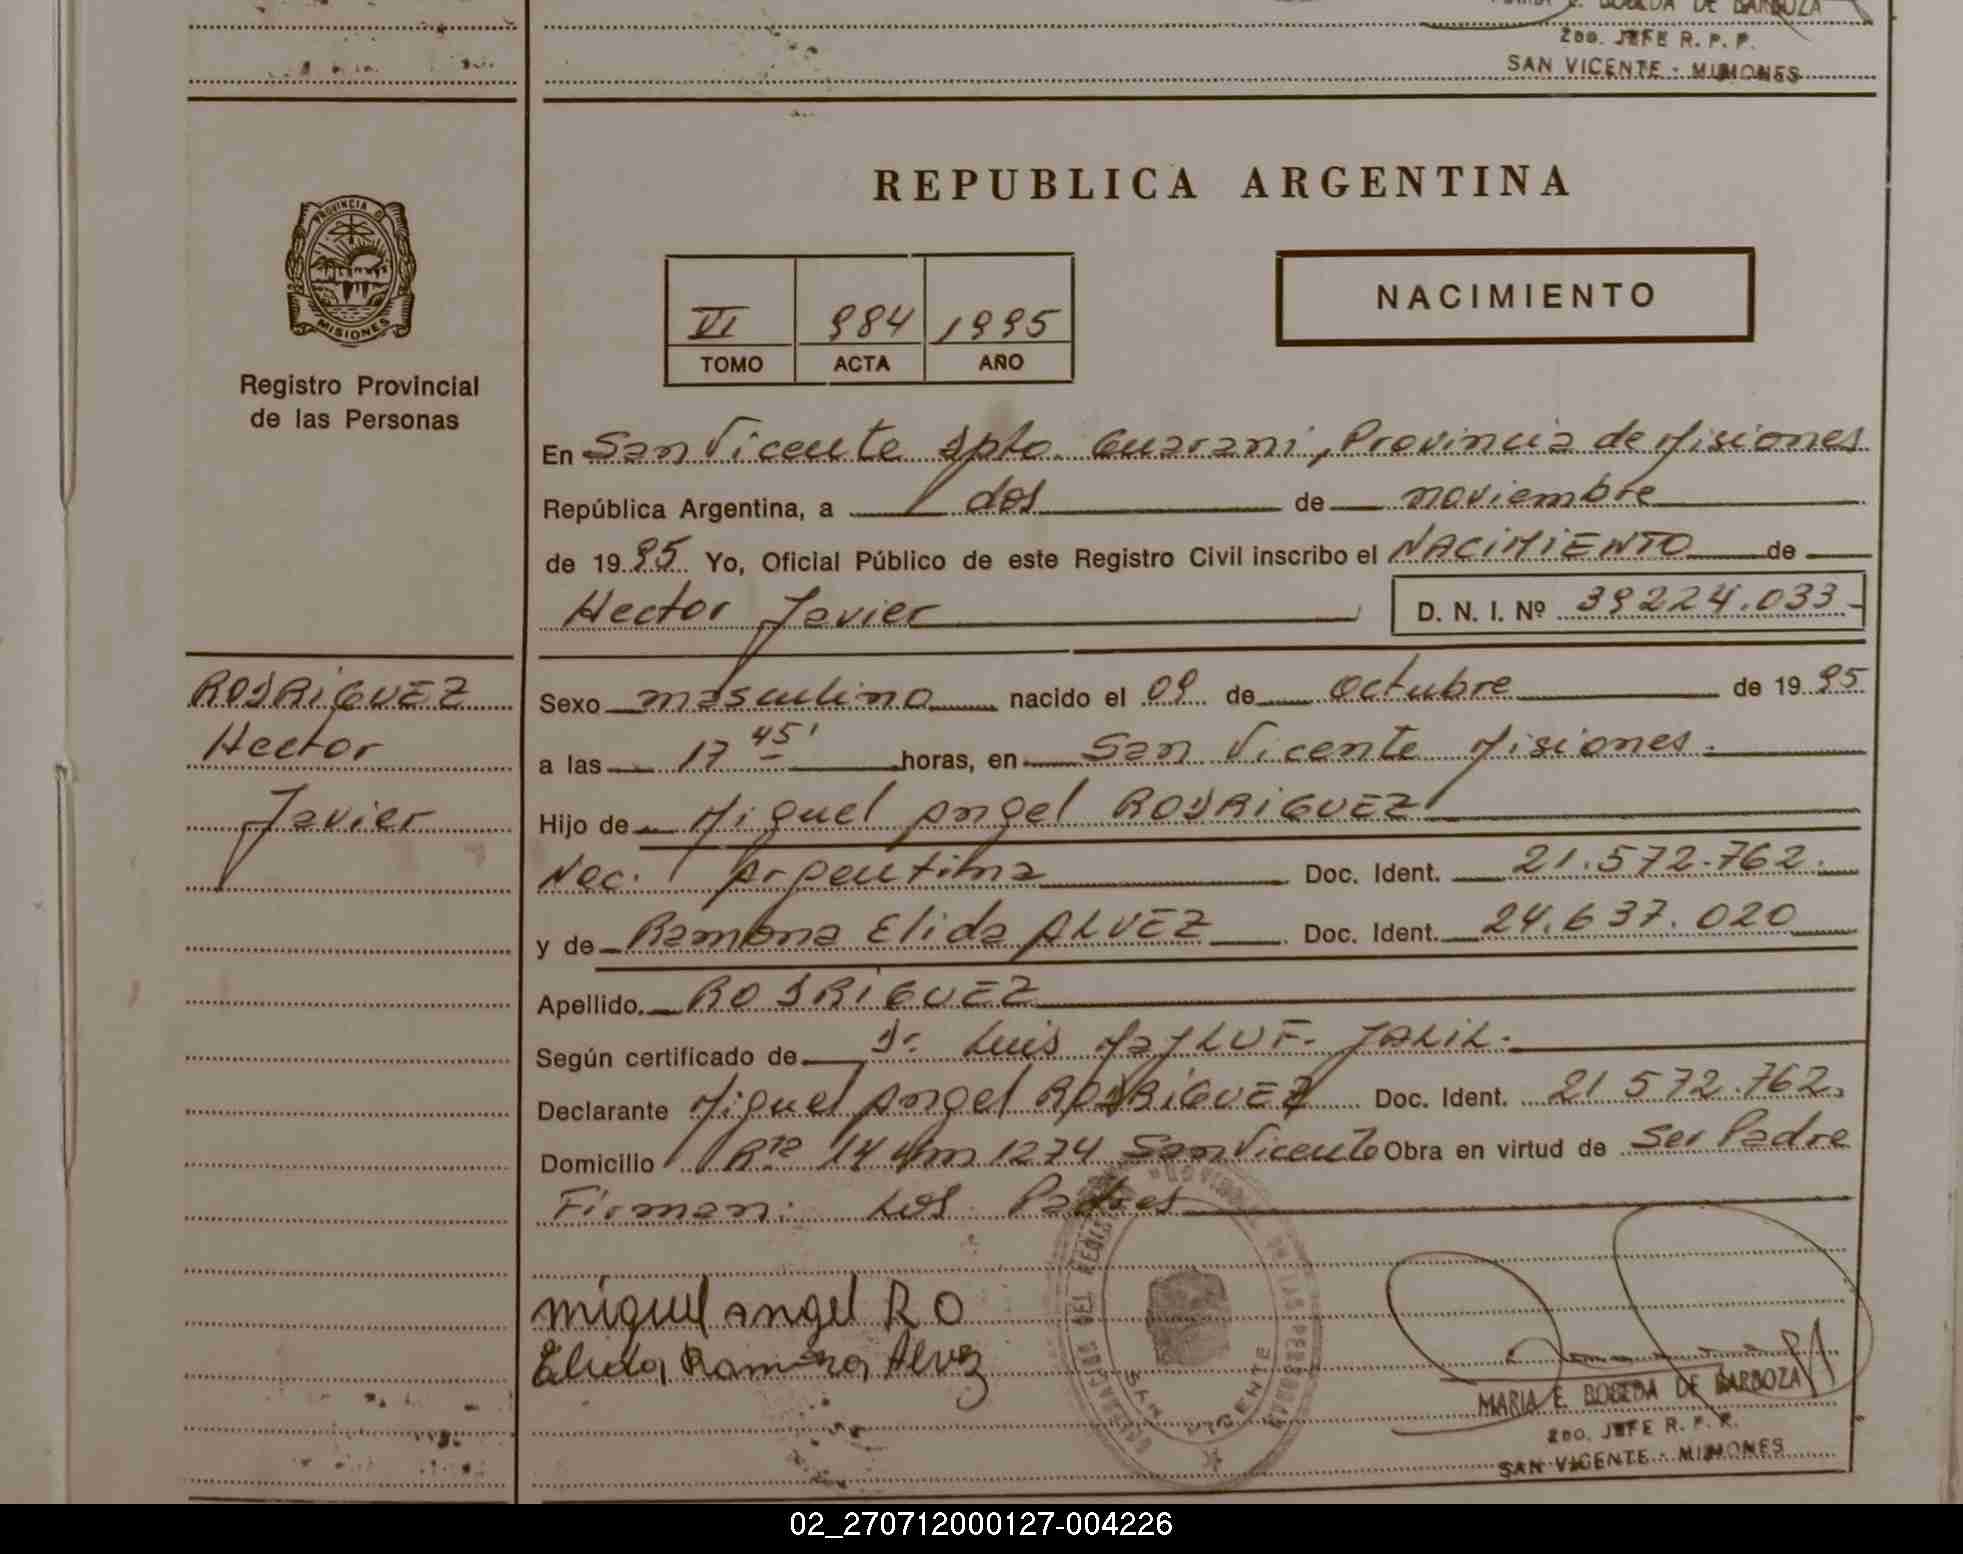 MARIA E. BOBEDA DE BARBOZA
2DO. JEFE R. P. P.
SAN VICENTE - MISIONES
REPUBLICA ARGENTINA
PROVINCIA D
MISIONES
Registro Provincial
de las Personas
VI 984 1995
TOMO ACTA AÑO
NACIMIENTO
En San Vicente Dpto. Guarani, Provincia de Misiones
República Argentina, a dos de noviembre
de 1995 Yo, Oficial Público de este Registro Civil inscribo el NACIMIENTO de
Hector Javier D. N. I. Nº 39224.033
RODRIGUEZ
Hector
Javier
Sexo masculino nacido el 09 de octubre de 1995
a las 17 45' horas, en San Vicente Misiones.
Hijo de Miguel Angel RODRIGUEZ
Nac. Argentina Doc. Ident. 21.572.762.
y de Ramona Elida ALVEZ Doc. Ident. 24.637.020
Apellido. RODRIGUEZ
Según certificado de Dr. Luis MAJLUF. JALIL.
Declarante Miguel Angel RODRIGUEZ Doc. Ident. 21 572.762.
Domicilio Rta 14 Km 1274 San Vicente Obra en virtud de Ser Padre
Firman: Los Padres
miguel angel R O
Elida Ramona Alvez
SAN VICENTE
MARIA E. BOBEDA DE BARBOZA
2DO. JEFE R. P. P.
SAN VICENTE - MISIONES
02_270712000127-004226